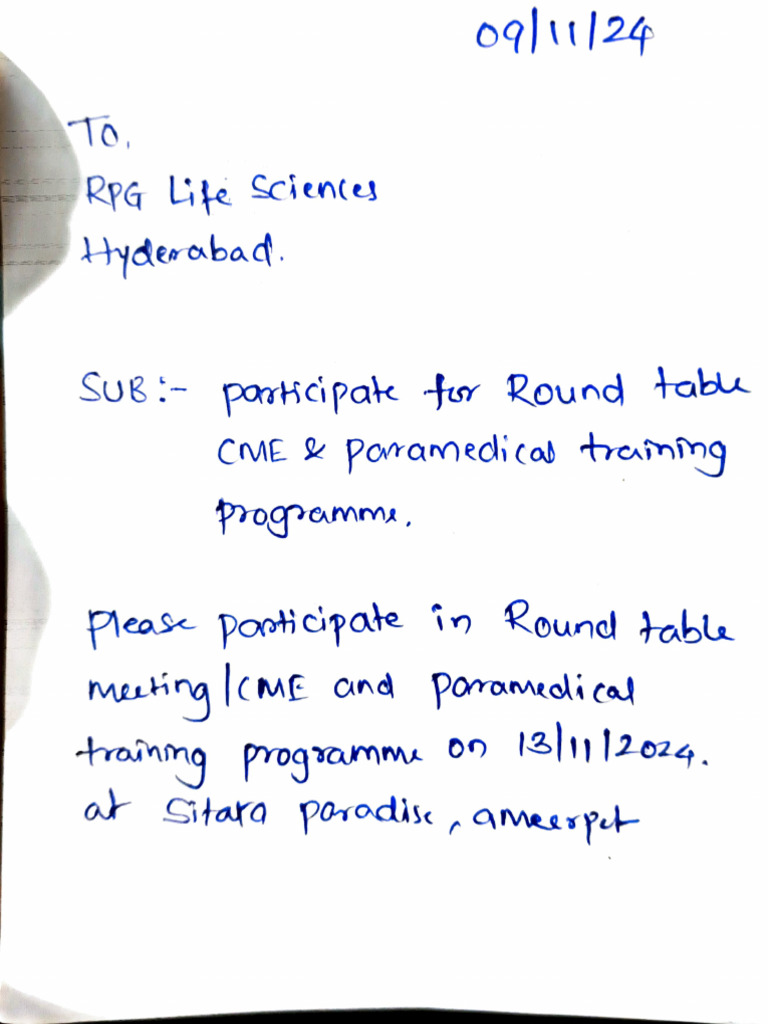 09/11/24
To,
RPG Life Sciences
Hyderabad.
SUB:- participate for Round table
CME & paramedical training
programme.
please participate in Round table
meeting/CME and paramedical
training programme on 13/11/2024.
at Sitara paradise, ameerpet